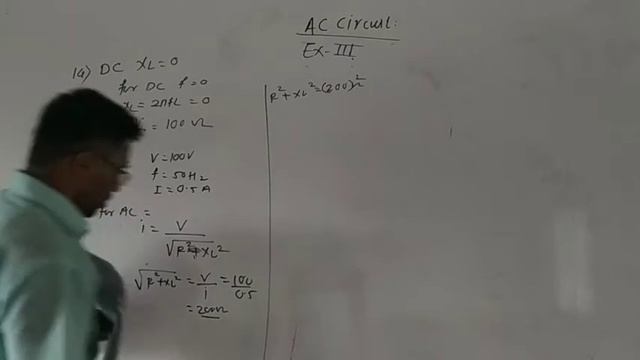 AC Circuit:
Ex-III
19) DC XL=0
for DC f=0
XL = 2πfL = 0
= 100 Ω
V=100V
f=50Hz
I=0.5A
for AC =
i = V
√R²+XL²
√R²+XL² = V/i = 100/0.5
=200Ω
R²+XL²=(200)²